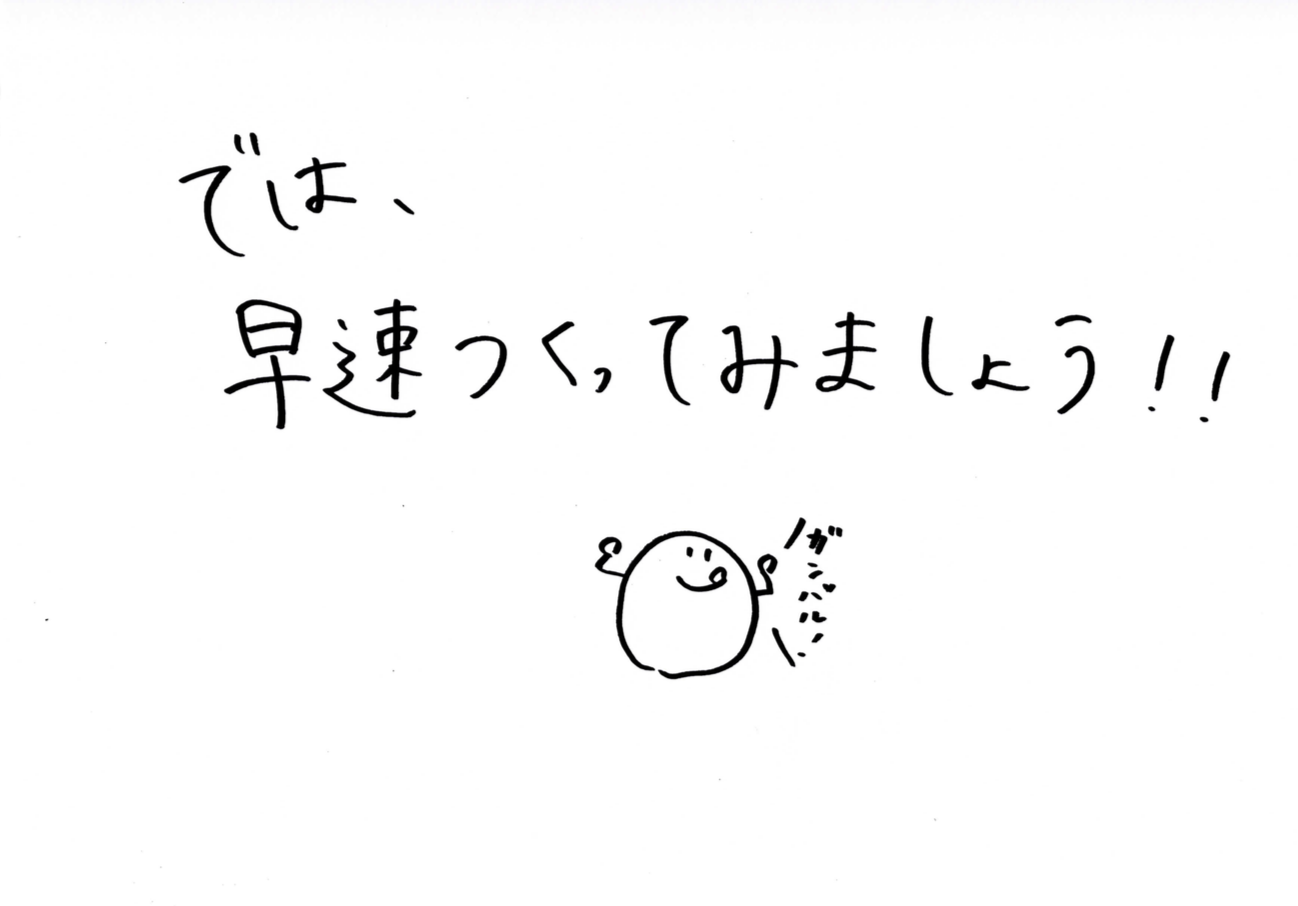 では、
早速つくってみましょう!!
ガンバルゾ!